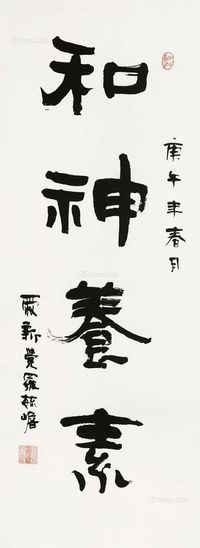 和神養素
庚午年春月
爱新觉羅毓嶦